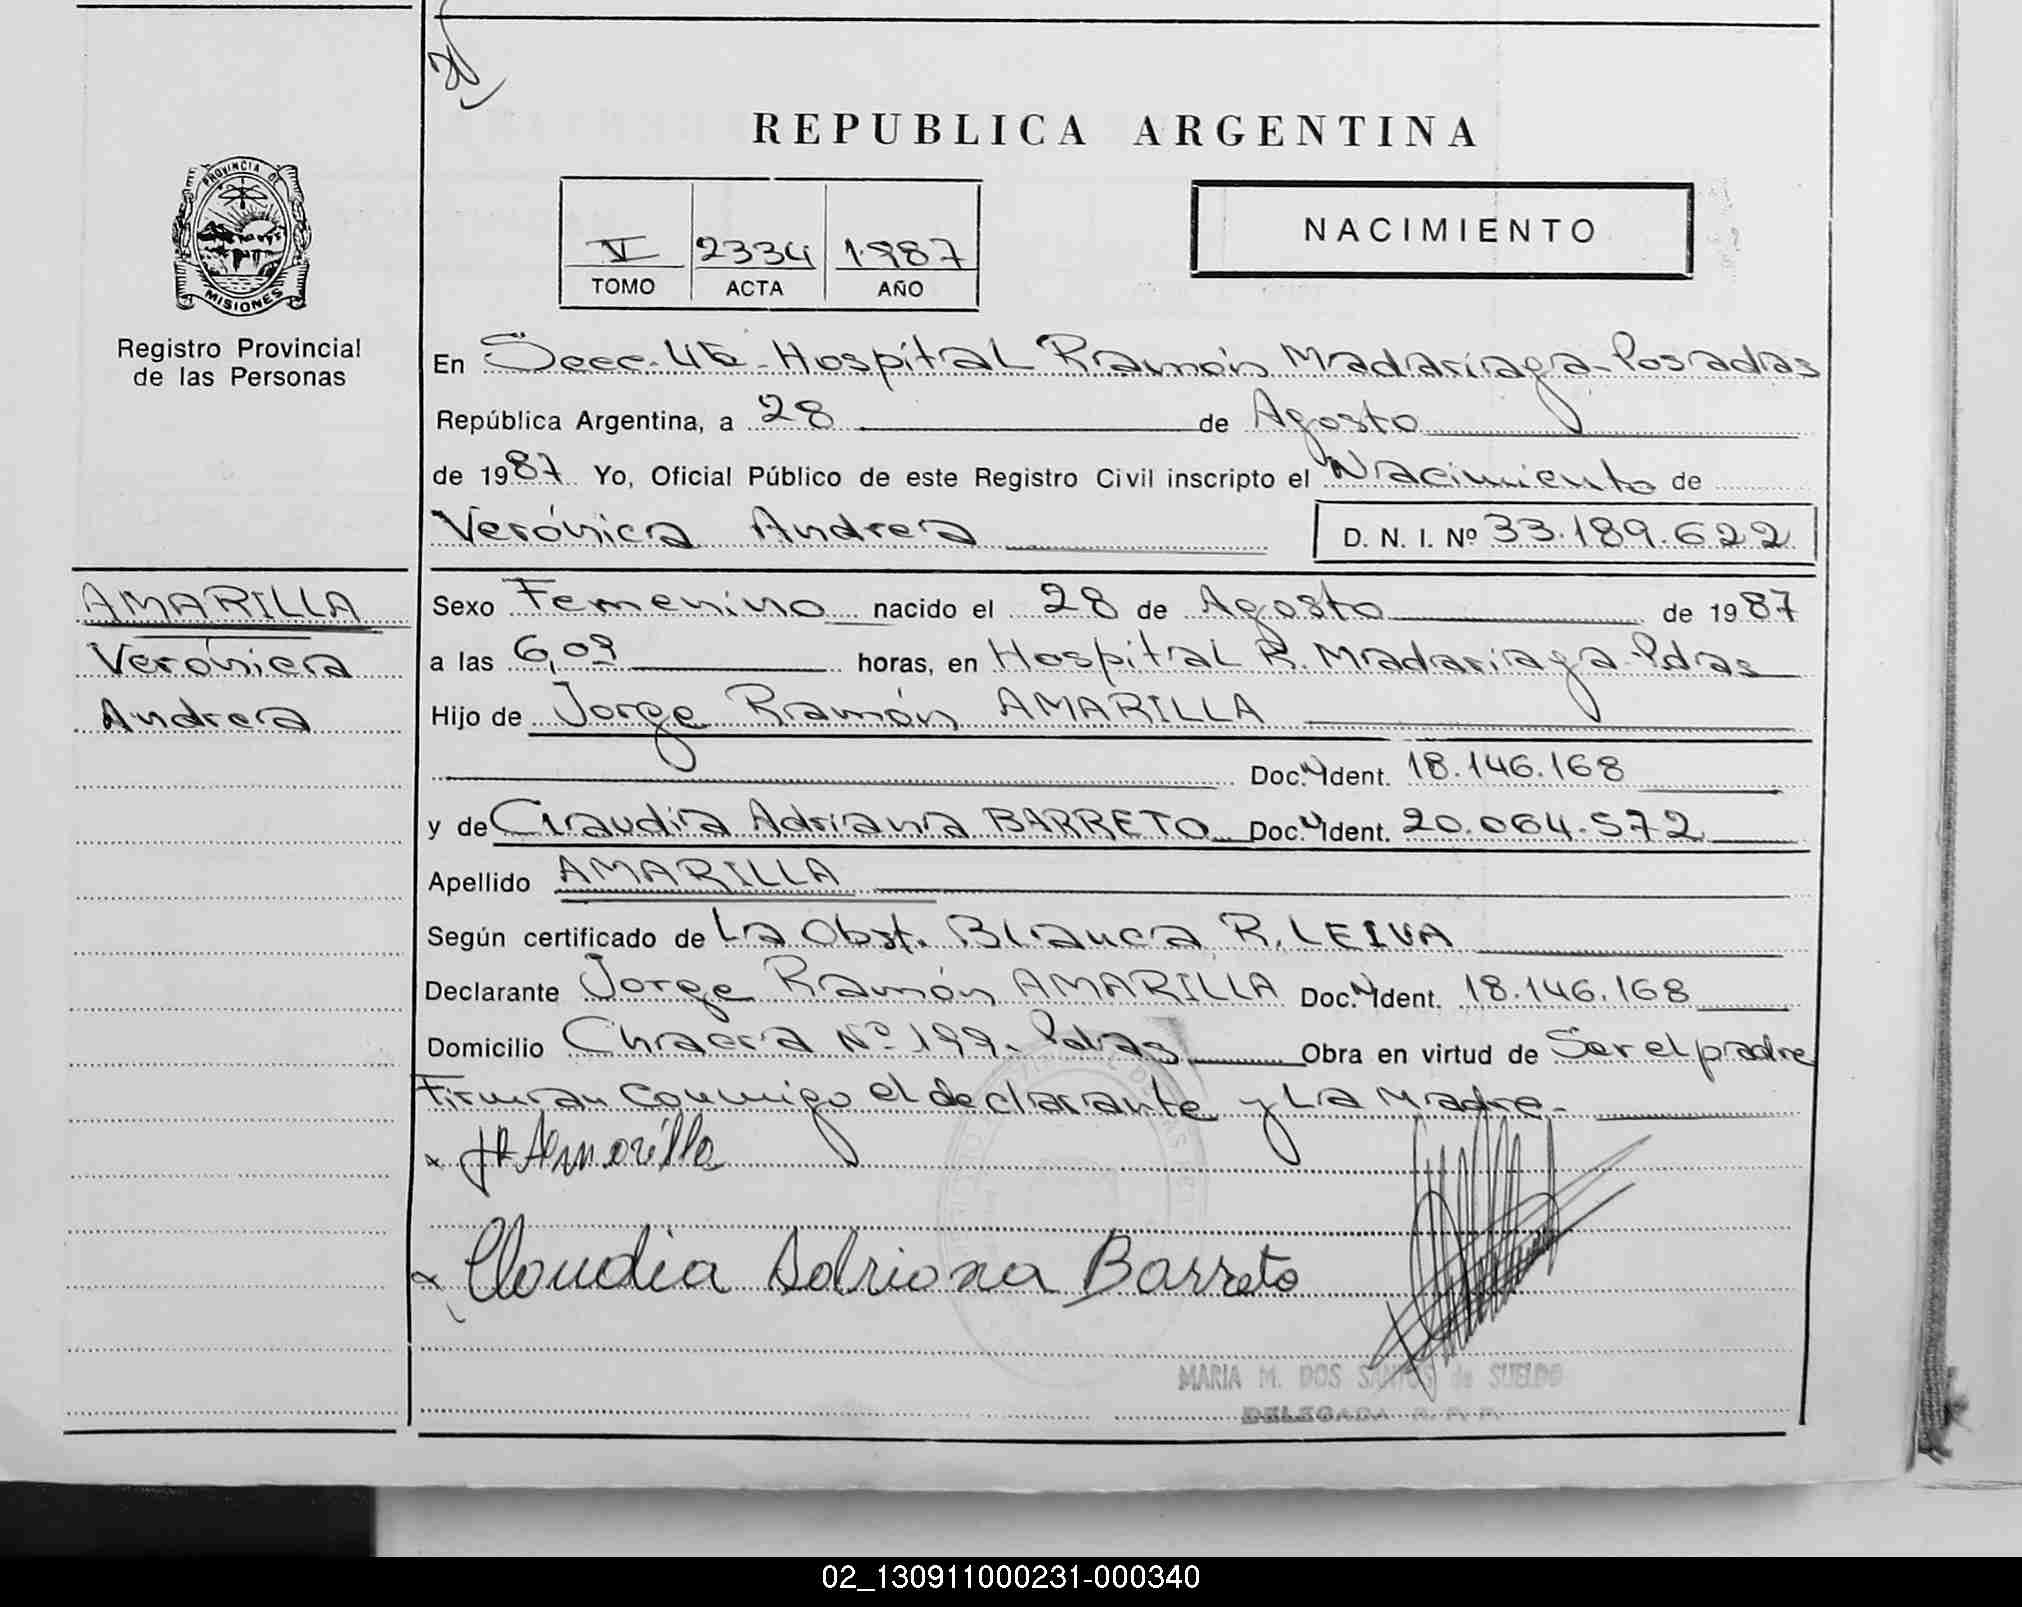 REPUBLICA ARGENTINA
PROVINCIA DE
MISIONES
Registro Provincial
de las Personas
V 2334 1987
TOMO ACTA AÑO
NACIMIENTO
En Secc. 4ta. Hospital Ramón Madariaga - Posadas
República Argentina, a 28 de Agosto
de 1987 Yo, Oficial Público de este Registro Civil inscripto el Nacimiento de
Verónica Andrea D. N. I. Nº 33.189.622
AMARILLA
Verónica
Andrea
Sexo Femenino nacido el 28 de Agosto de 1987
a las 6,09 horas, en Hospital R. Madariaga - Pdas
Hijo de Jorge Ramón AMARILLA
Doc. Ident. 18.146.168
y de Claudia Adriana BARRETO Doc. Ident. 20.064.572
Apellido AMARILLA
Según certificado de La Obst. Blanca R. LEIVA
Declarante Jorge Ramón AMARILLA Doc. Ident. 18.146.168
Domicilio Chacra Nº 199. Pdas Obra en virtud de Ser el padre
Firman conmigo el declarante y La Madre.
x JR Amarilla
x Claudia Adriana Barreto
MARIA M. DOS SANTOS de SUELDO
DELEGADA R. P. P.
02_130911000231-000340